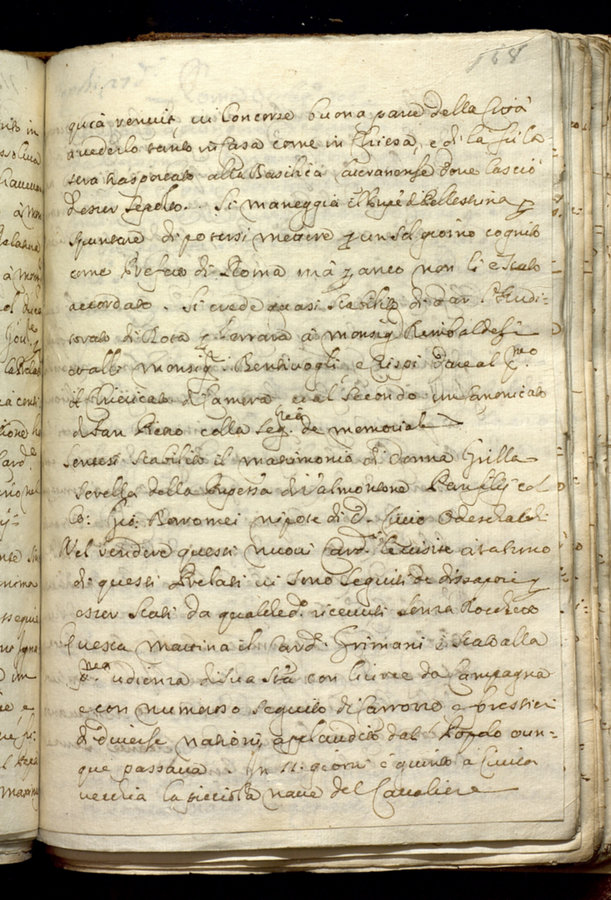 168
vi Concorse buona parte della Città
a vederlo tanto in Casa come in Chiesa, e di la fù la
sera trasportato alla Basilica Lateranense dove lasciò
d'esser sepolto. Si maneggia il Prnpe di Pellestrina p
spuntare di potersi mettere p un sol giorno cognito
come Prefetto di Roma mà p anco non li è stato
accordato. Si crede quasi stabilito di dar l'Audi-
torato di Rota p Ferrara à Monsig.r
Monsig.ri Bentivogli e Crispi dare al p.mo
il Chiericato di Camera et al secondo un Canonicato
di San Pietro colla Seg.ria de memoriali
Sentesi stabilito il matrimonio di Donna Grilla
Sorella della di Valmontone Panfilij col
Co: Borromei nipote di D. Livio Odescalchi
Nel rendere questi nuovi Card.li le visite a taluno
di questi Prelati vi sono seguiti de dissapori p
esser stati da qualched.o ricevuti senza Rocchetto
Questa mattina il Card. Grimani è stato alla
p.ma udienza di Sua S.tà con livree da Campagna
e con numeroso seguito di Carrozze e forestieri
di diverse nationi, applaudito dal Popolo oun-
que passava. In 11 giorni è giunto a Civita
vecchia la piccola nave del Cavaliere